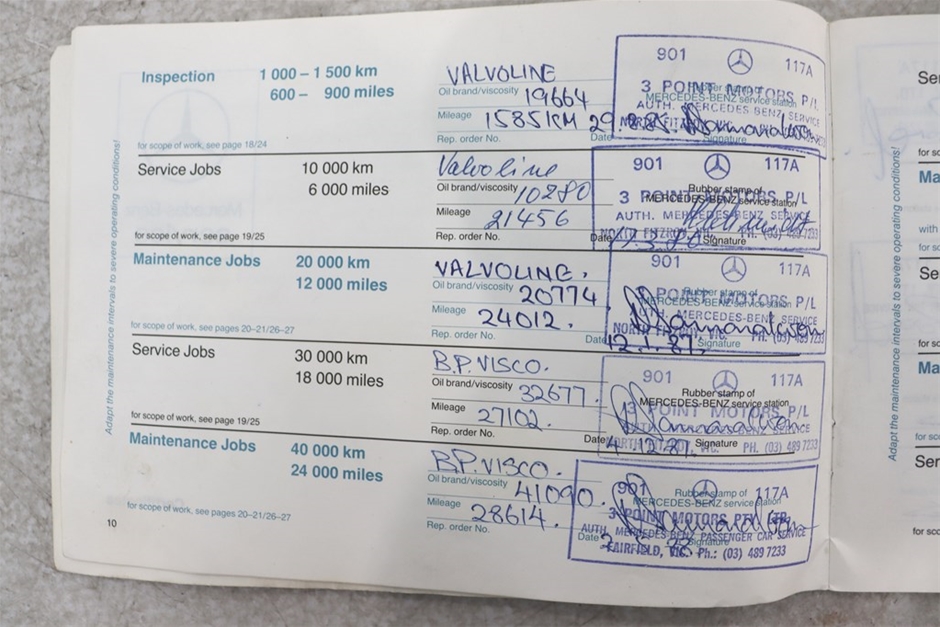 Adapt the maintenance intervals to severe operating conditions!
Inspection 1 000 – 1 500 km
600 – 900 miles
for scope of work, see page 18/24
VALVOLINE
Oil brand/viscosity 19664
Mileage 1585KM
Rep. order No. Date
901 117A
3 POINT MOTORS P/L
Rubber stamp of
MERCEDES-BENZ service station
AUTH. MERCEDES BENZ SERVICE
Signature
Service Jobs 10 000 km
6 000 miles
for scope of work, see page 19/25
Valvoline
Oil brand/viscosity 10280
Mileage 21456
Rep. order No. Date
901 117A
Rubber stamp of
3 POINT MOTORS P/L
MERCEDES-BENZ service station
AUTH. MERCEDES BENZ SERVICE
NORTH FITZROY, VIC. PH. (03) 489 7233
Signature
Maintenance Jobs 20 000 km
12 000 miles
for scope of work, see pages 20–21/26–27
VALVOLINE.
Oil brand/viscosity 20774
Mileage 24012.
Rep. order No. Date
901 117A
Rubber stamp of
3 POINT MOTORS P/L
MERCEDES-BENZ service station
AUTH. MERCEDES-BENZ SERVICE
NORTH FITZROY, VIC. PH. (03) 489 7233
12.1.87. Signature
Service Jobs 30 000 km
18 000 miles
for scope of work, see page 19/25
B.P. VISCO.
Oil brand/viscosity 32677.
Mileage 27102.
Rep. order No. Date
901 117A
Rubber stamp of
MERCEDES-BENZ service station
3 POINT MOTORS P/L
SERVICE
NORTH FITZROY, VIC. PH. (03) 489 7233
4.12.87. Signature
Maintenance Jobs 40 000 km
24 000 miles
for scope of work, see pages 20–21/26–27
B.P. VISCO.
Oil brand/viscosity 41090.
Mileage 28614.
Rep. order No. Date
901 117A
Rubber stamp of
MERCEDES-BENZ service station
3 POINT MOTORS PTY. LTD.
AUTH. MERCEDES BENZ PASSENGER CAR SERVICE
Signature
FAIRFIELD, VIC. Ph.: (03) 489 7233
10
Adapt the maintenance intervals to severe operating conditions!
Ser
for sc
Ma
with
for sc
Ser
for sc
Ma
for sc
Ser
for sc